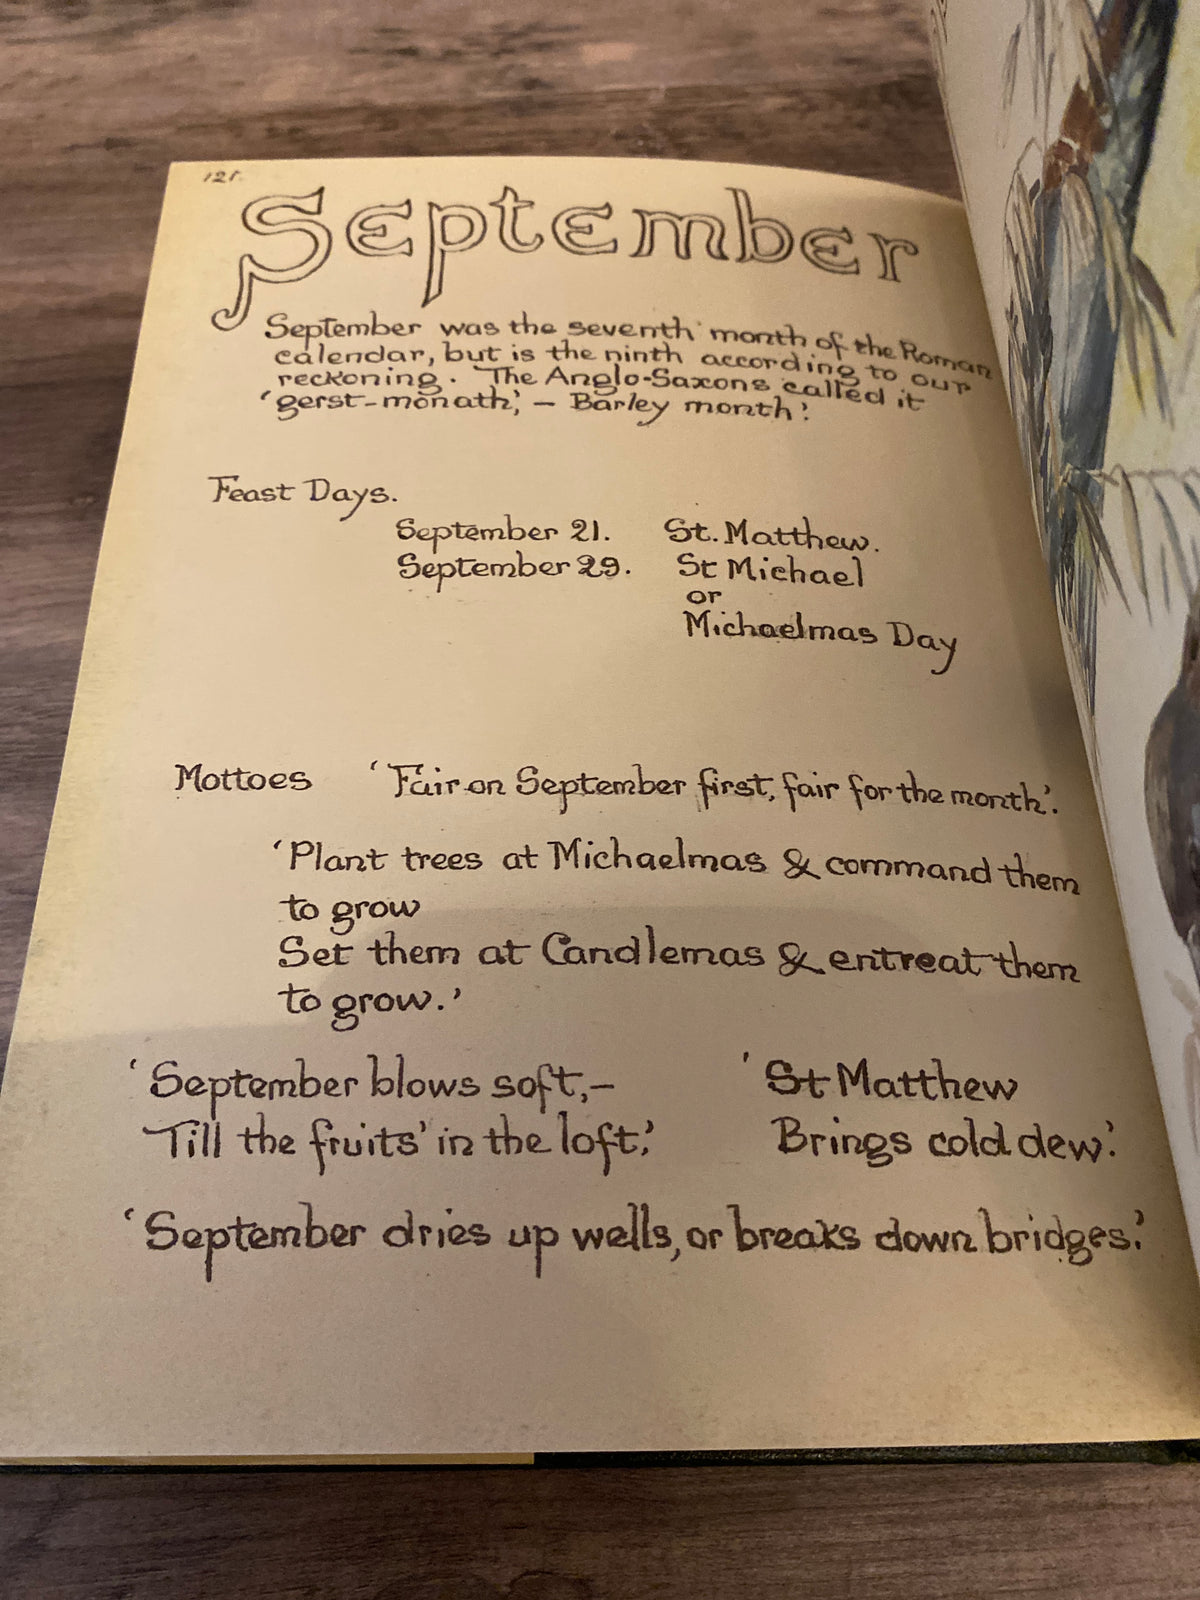 121.
September
September was the seventh month of the Roman
calendar, but is the ninth according to our
reckoning. The Anglo-Saxons called it
'gerst-monath', – Barley month'.
Feast Days.
September 21. St. Matthew.
September 29. St Michael
or
Michaelmas Day
Mottoes 'Fair on September first, fair for the month'.
'Plant trees at Michaelmas & command them
to grow
Set them at Candlemas & entreat them
to grow.'
'September blows soft,–
Till the fruits' in the loft.'
'St Matthew
Brings cold dew'.
'September dries up wells, or breaks down bridges'.